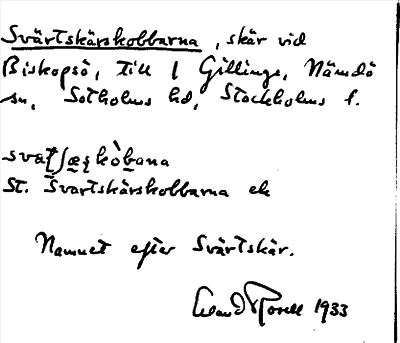 Svärtskärskobbarna, skär vid
Biskopsö, till 1 Gillinge, Nämdö
sn, Sotholms hd, Stockholms l.
St. Svartskärskobbarna ek
Namnet efter Svärtskär.
Rosell 1933